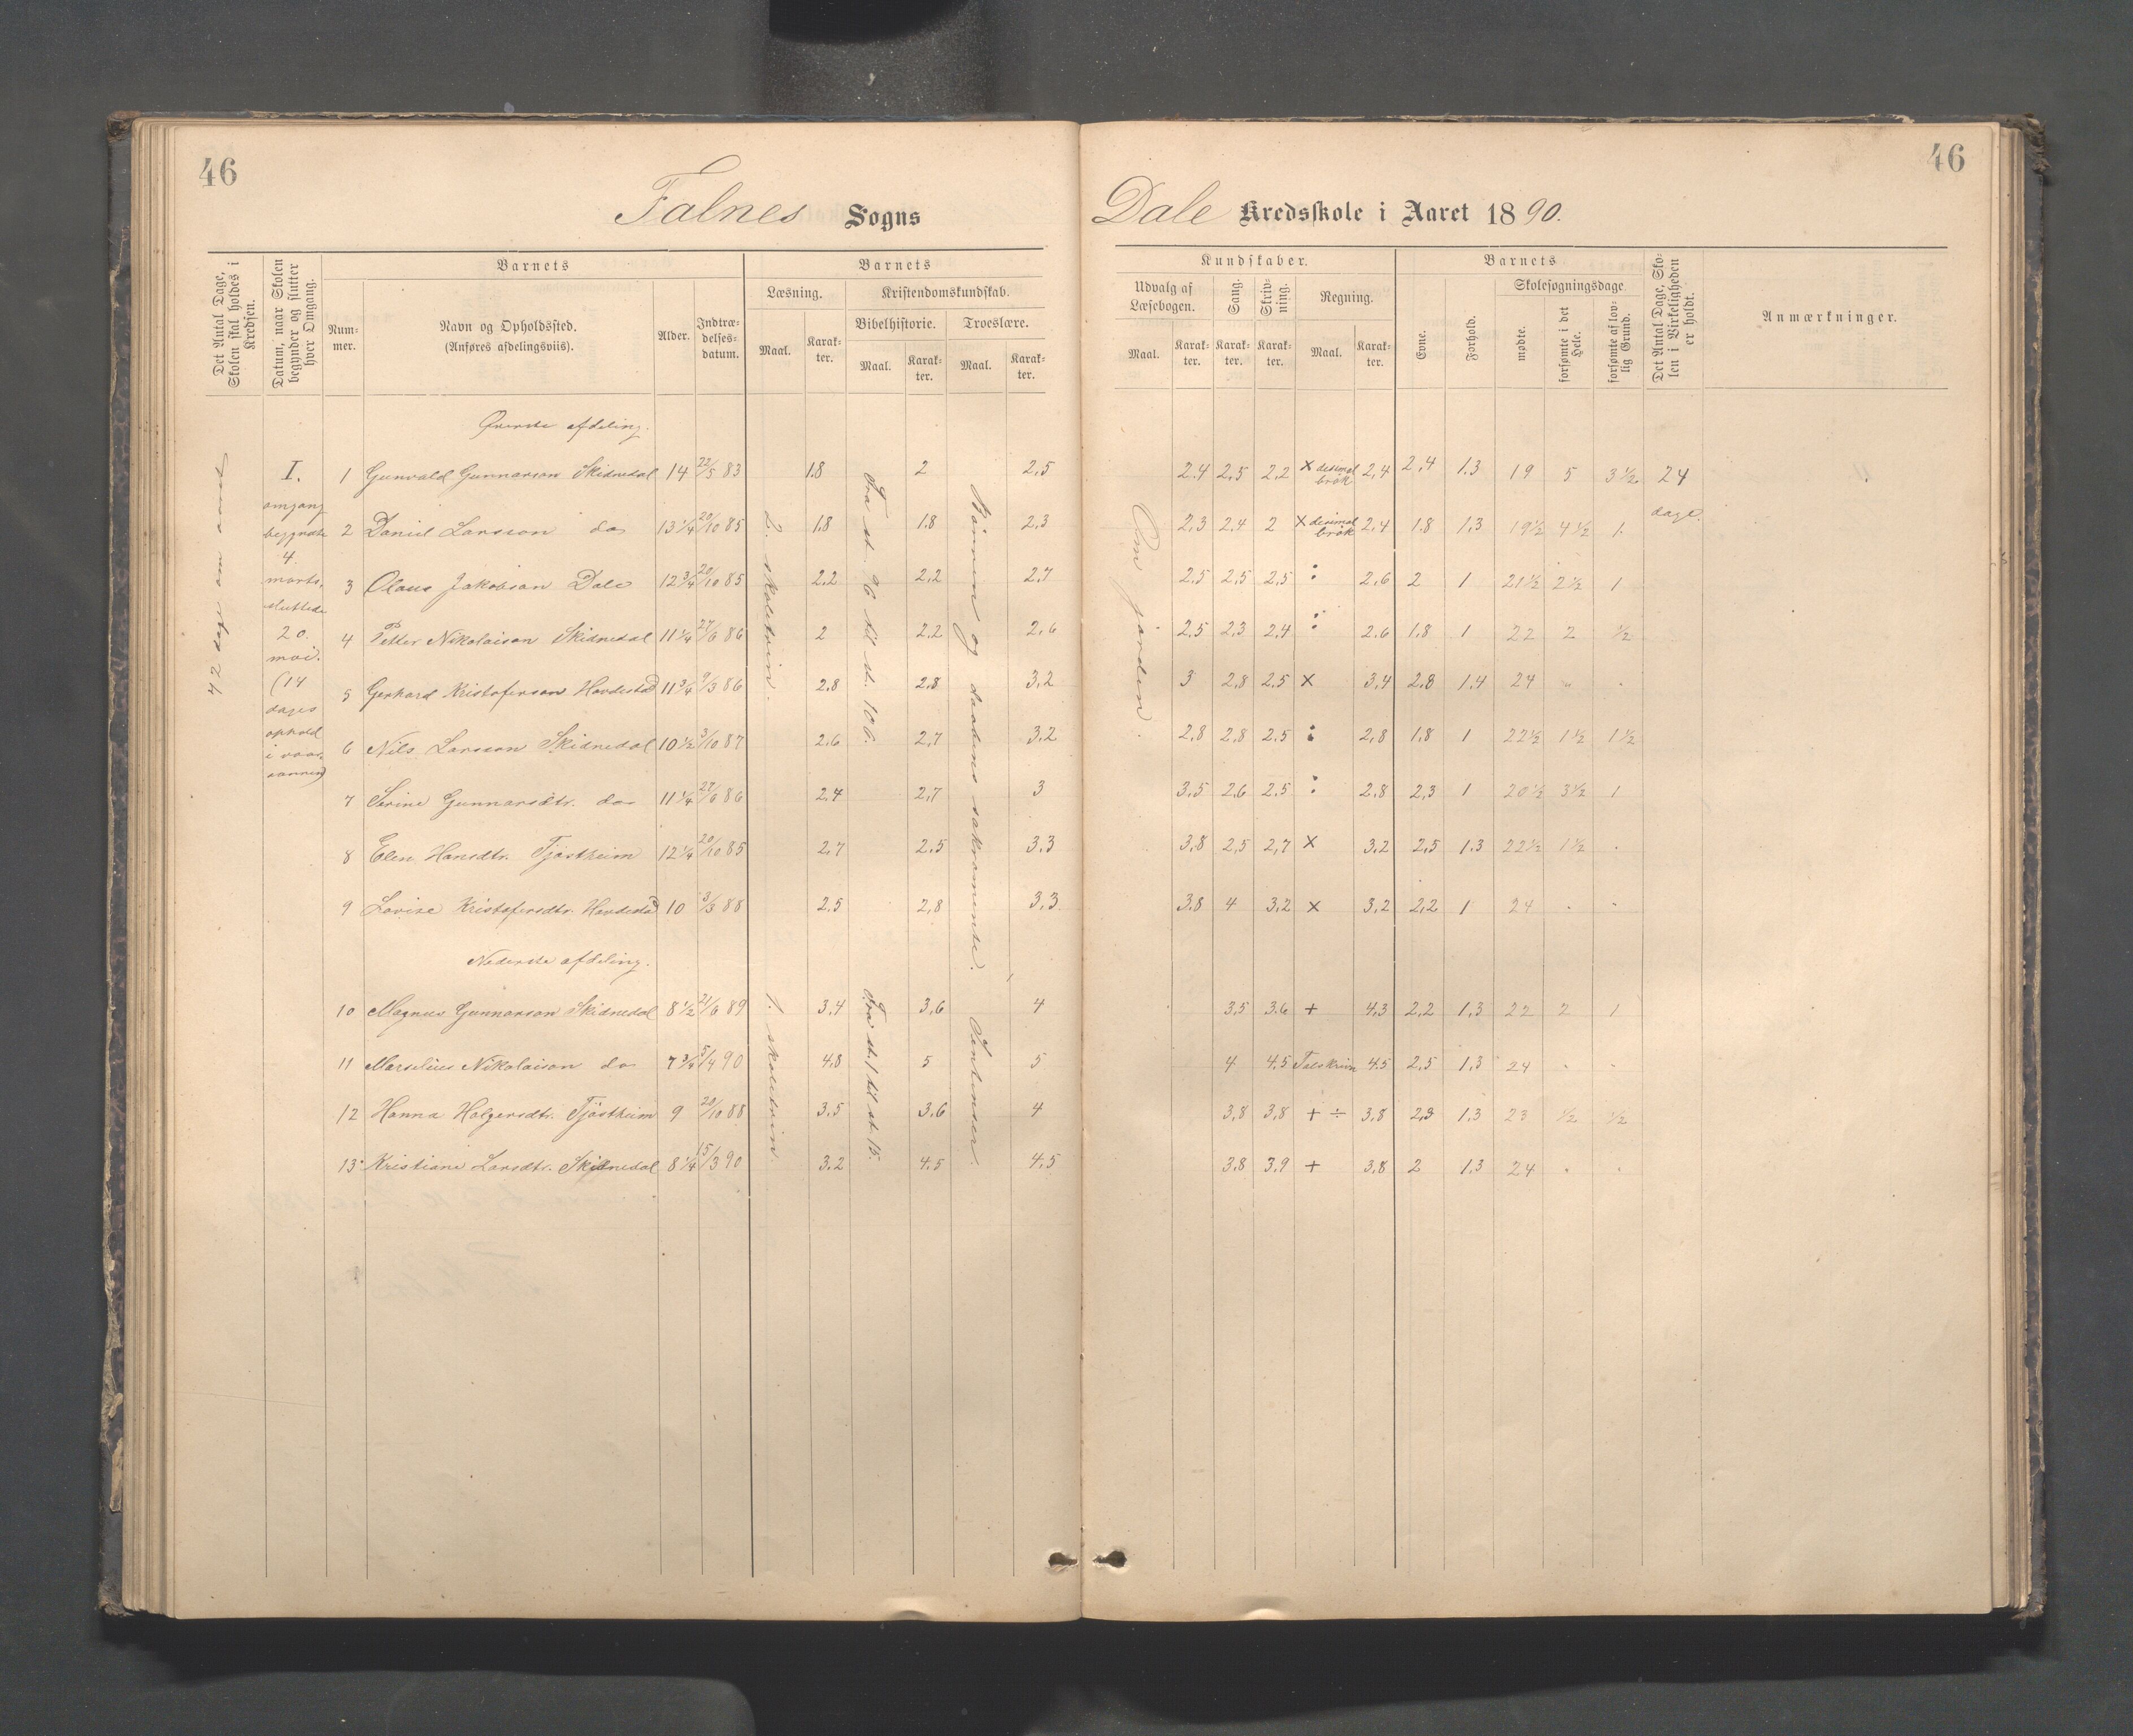 46
46
Falnes Sogns
Dale Kredsskole i Aaret 1890.
Det Antal Dage, Skolen skal holdes i Kredsen.
Datum, naar Skolen begynder og slutter hver Omgang.
Barnets
Num-mer.
Navn og Opholdssted.
(Anføres afdelingsviis).
Alder.
Indtræ-delses-datum.
Barnets
Læsning.
Maal.
Karak-ter.
Kristendomskundskab.
Bibelhistorie.
Maal.
Karak-ter.
Troeslære.
Maal.
Karak-ter.
Kundskaber.
Udvalg af Læsebogen.
Maal.
Karak-ter.
Sang.
Karak-ter.
Skriv-ning.
Karak-ter.
Regning.
Maal.
Karak-ter.
Barnets
Evne.
Forhold.
Skolesøgningsdage
mødte.
forsømte i det Hele.
forsømte af lov-lig Grund.
Det Antal Dage, Sko-len i Virkeligheden er holdt.
Anmærkninger.
42 dage om aaret
I.
omgang
begyndte
4.
marts,
sluttede
20.
mai.
(14
dages
ophold
i
Øverste afdeling.
1 Gunvald Gunnarson Skidnedal 14 22/5 83 1.8 2 2,5 2.4 2,5 2,2 × desimal brøk 2,4 2,4 1.3 19 5 3½ 24
2 Daniel Larsson do 13¼ 20/10 85 1.8 1.8 2,3 2,3 2,4 2 × desimal brøk 2,4 1.8 1,3 19½ 4½ 1. dage.
3 Olaus Jakobson Dale 12¾ 20/10 85 2,2 2,2 2,7 2,5 2,5 2,5 : 2,6 2 1 21½ 2½ 1
4 Petter Nikolaison Skidnedal 11¼ 27/6 86 2 2,2 2,6 2,5 2,3 2,4 : 2.6 1,8 1 22 2 ½
5 Gerhard Kristoferson Hovdestad 11¾ 9/3 86 2,8 2,8 3,2 3 2,8 2.5 × 3,4 2,8 1.4 24 " .
6 Nils Larsson Skidnedal 10½ 3/10 87 2,6 2,7 3,2 2,8 2,8 2.5 : 2,8 1,8 1 22½ 1½ 1½
7 Serine Gunnarsdtr. do 11¼ 27/6 86 2,4 2,7 3 3,5 2,6 2.5 : 2,8 2,3 1 20½ 3½ 1
8 Elen Hansdtr. Tjøstheim 12¼ 20/10 85 2,7 2,5 3,3 3,8 2,5 2,7 × 3.2 2,5 1.3 22½ 1½ .
9 Lovise Kristofersdtr. Hovdestad 10 3/3 88 2,5 2,8 3,3 3,8 4 3,2 × 3,2 2,2 1 24 . .
2. skoletrin.
Fra st. 96 til st. 106.
Bønnen og daabens sakramente.
Om jorden.
Nederste afdeling.
10 Magnus Gunnarson Skidnedal 8½ 21/6 89 3,4 3,6 4 3,5 3.6 + 4,3 2,2 1,3 22 2 1
11 Marselius Nikolaison do 7¾ 5/4 90 4,8 5 5 4 4.5 Talskriv 4.5 2,5 1,3 24 . .
12 Hanna Holgersdtr. Tjøstheim 9 20/10 88 3,5 3,6 4 3,8 3,8 + ÷ 3,8 2,3 1.3 23 ½ ½
13 Kristiane Larsdtr. Skidnedal 8¼ 15/3 90 3,2 4.5 4,5 3,8 3,9 + 3,8 2 1,3 24 . .
1. skoletrin
Fra st. 1 til st. 15.